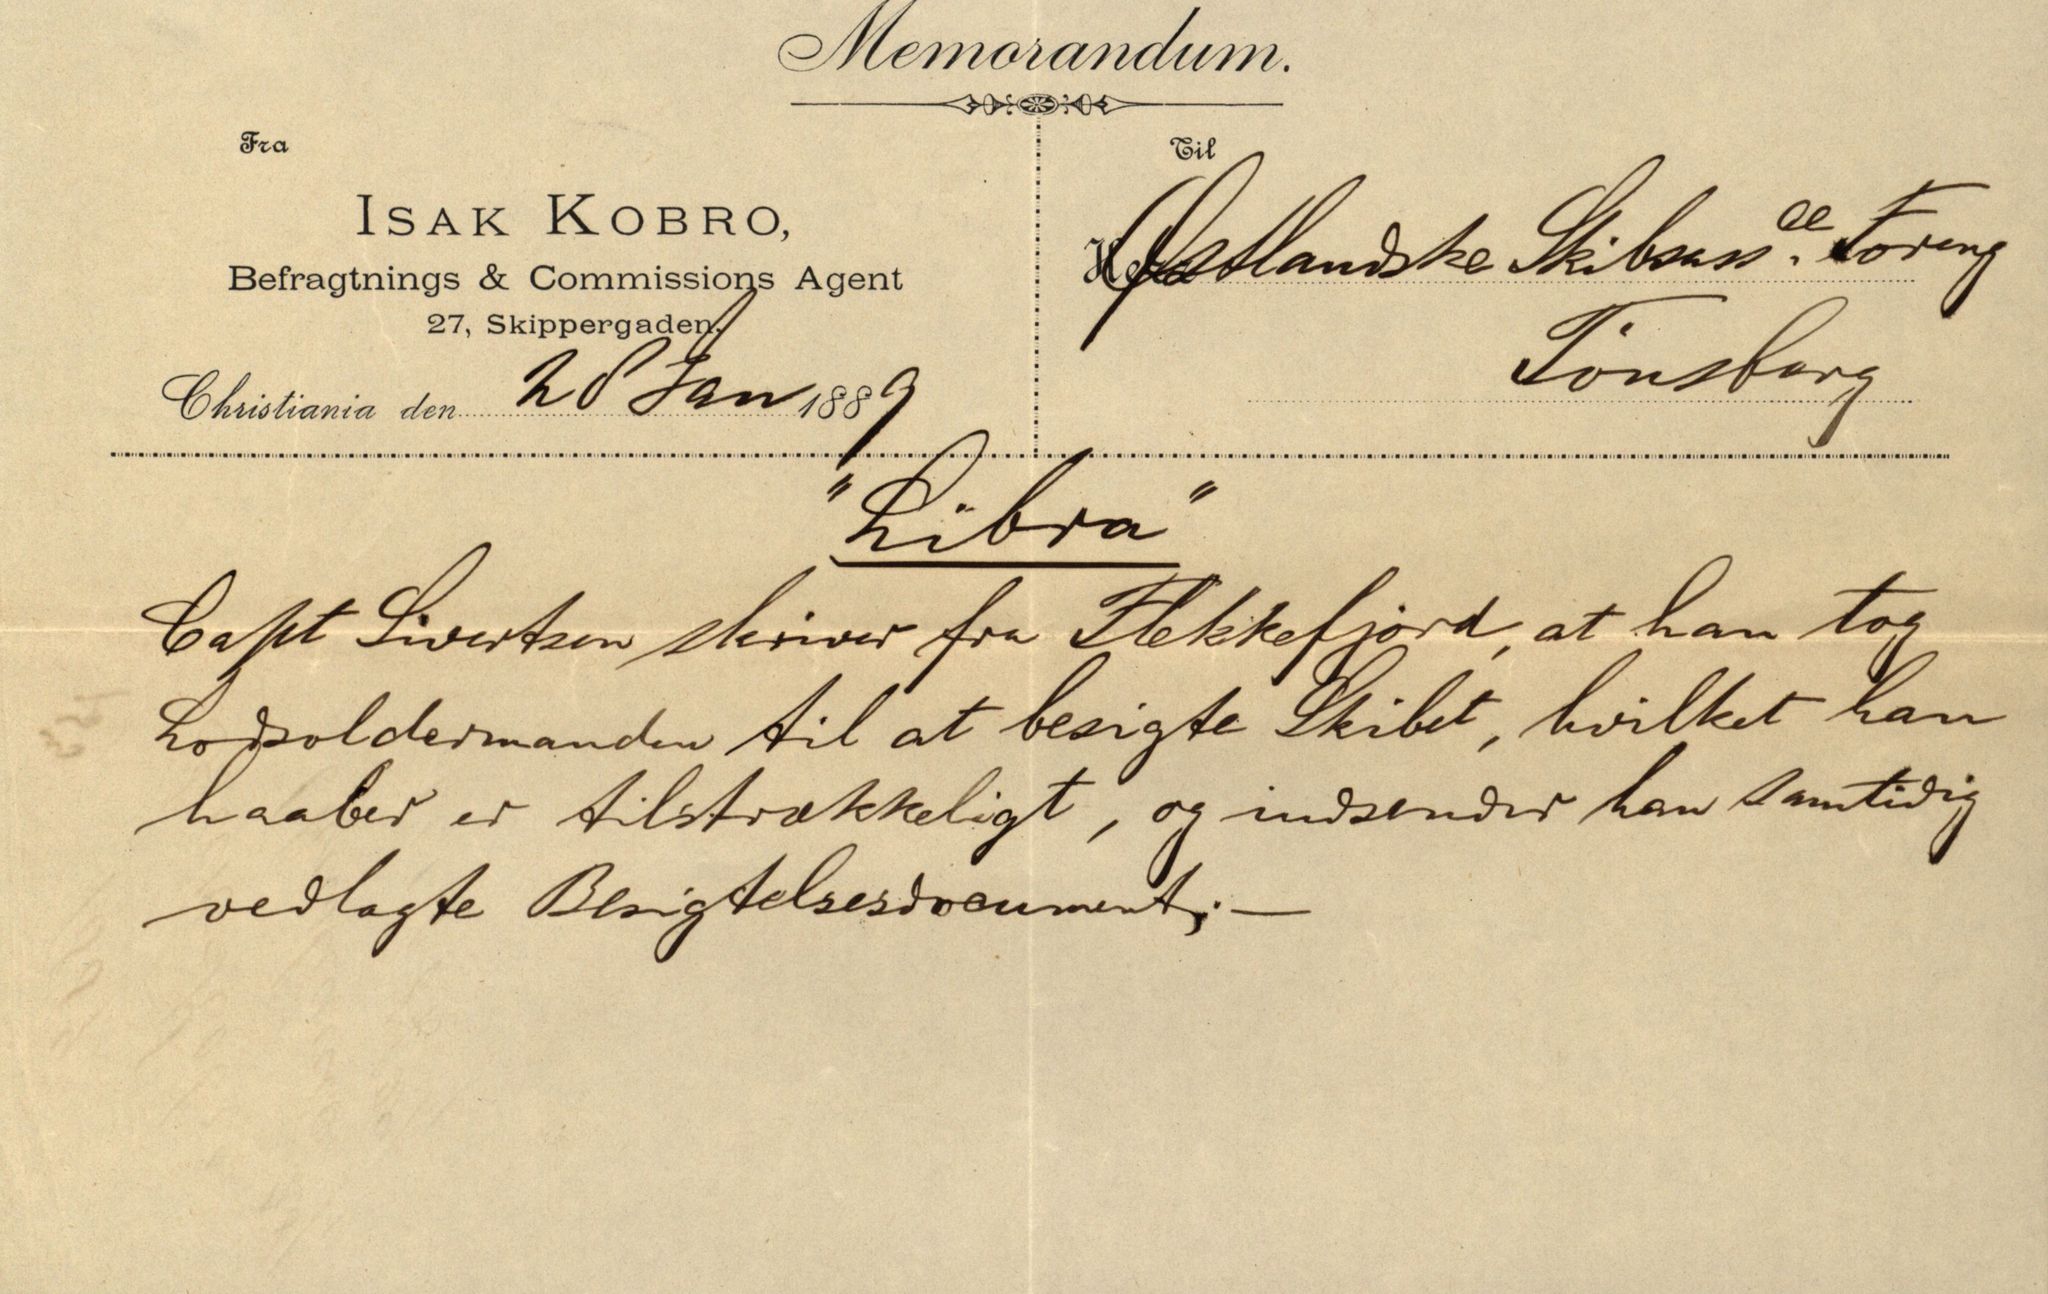 Memorandum.
Fra
Til
ISAK KOBRO,
Befragtnings & Commissions Agent
27, Skippergaden.
Christiania den 28 Jan 1889
Østlandske Skibsass ce. Foreng
Tönsberg
"Libra"
Capt Sivertsen skriver fra Flekkefjord, at han tog
Lodsoldermanden til at besigte Skibet, hvilket han
haaber er tilstrækkeligt, og indsender han samtidig
vedlagte Besigtelsesdocument; —